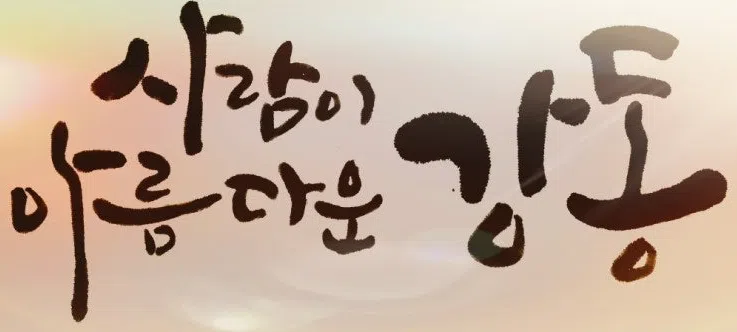 사람이
아름다운 강동